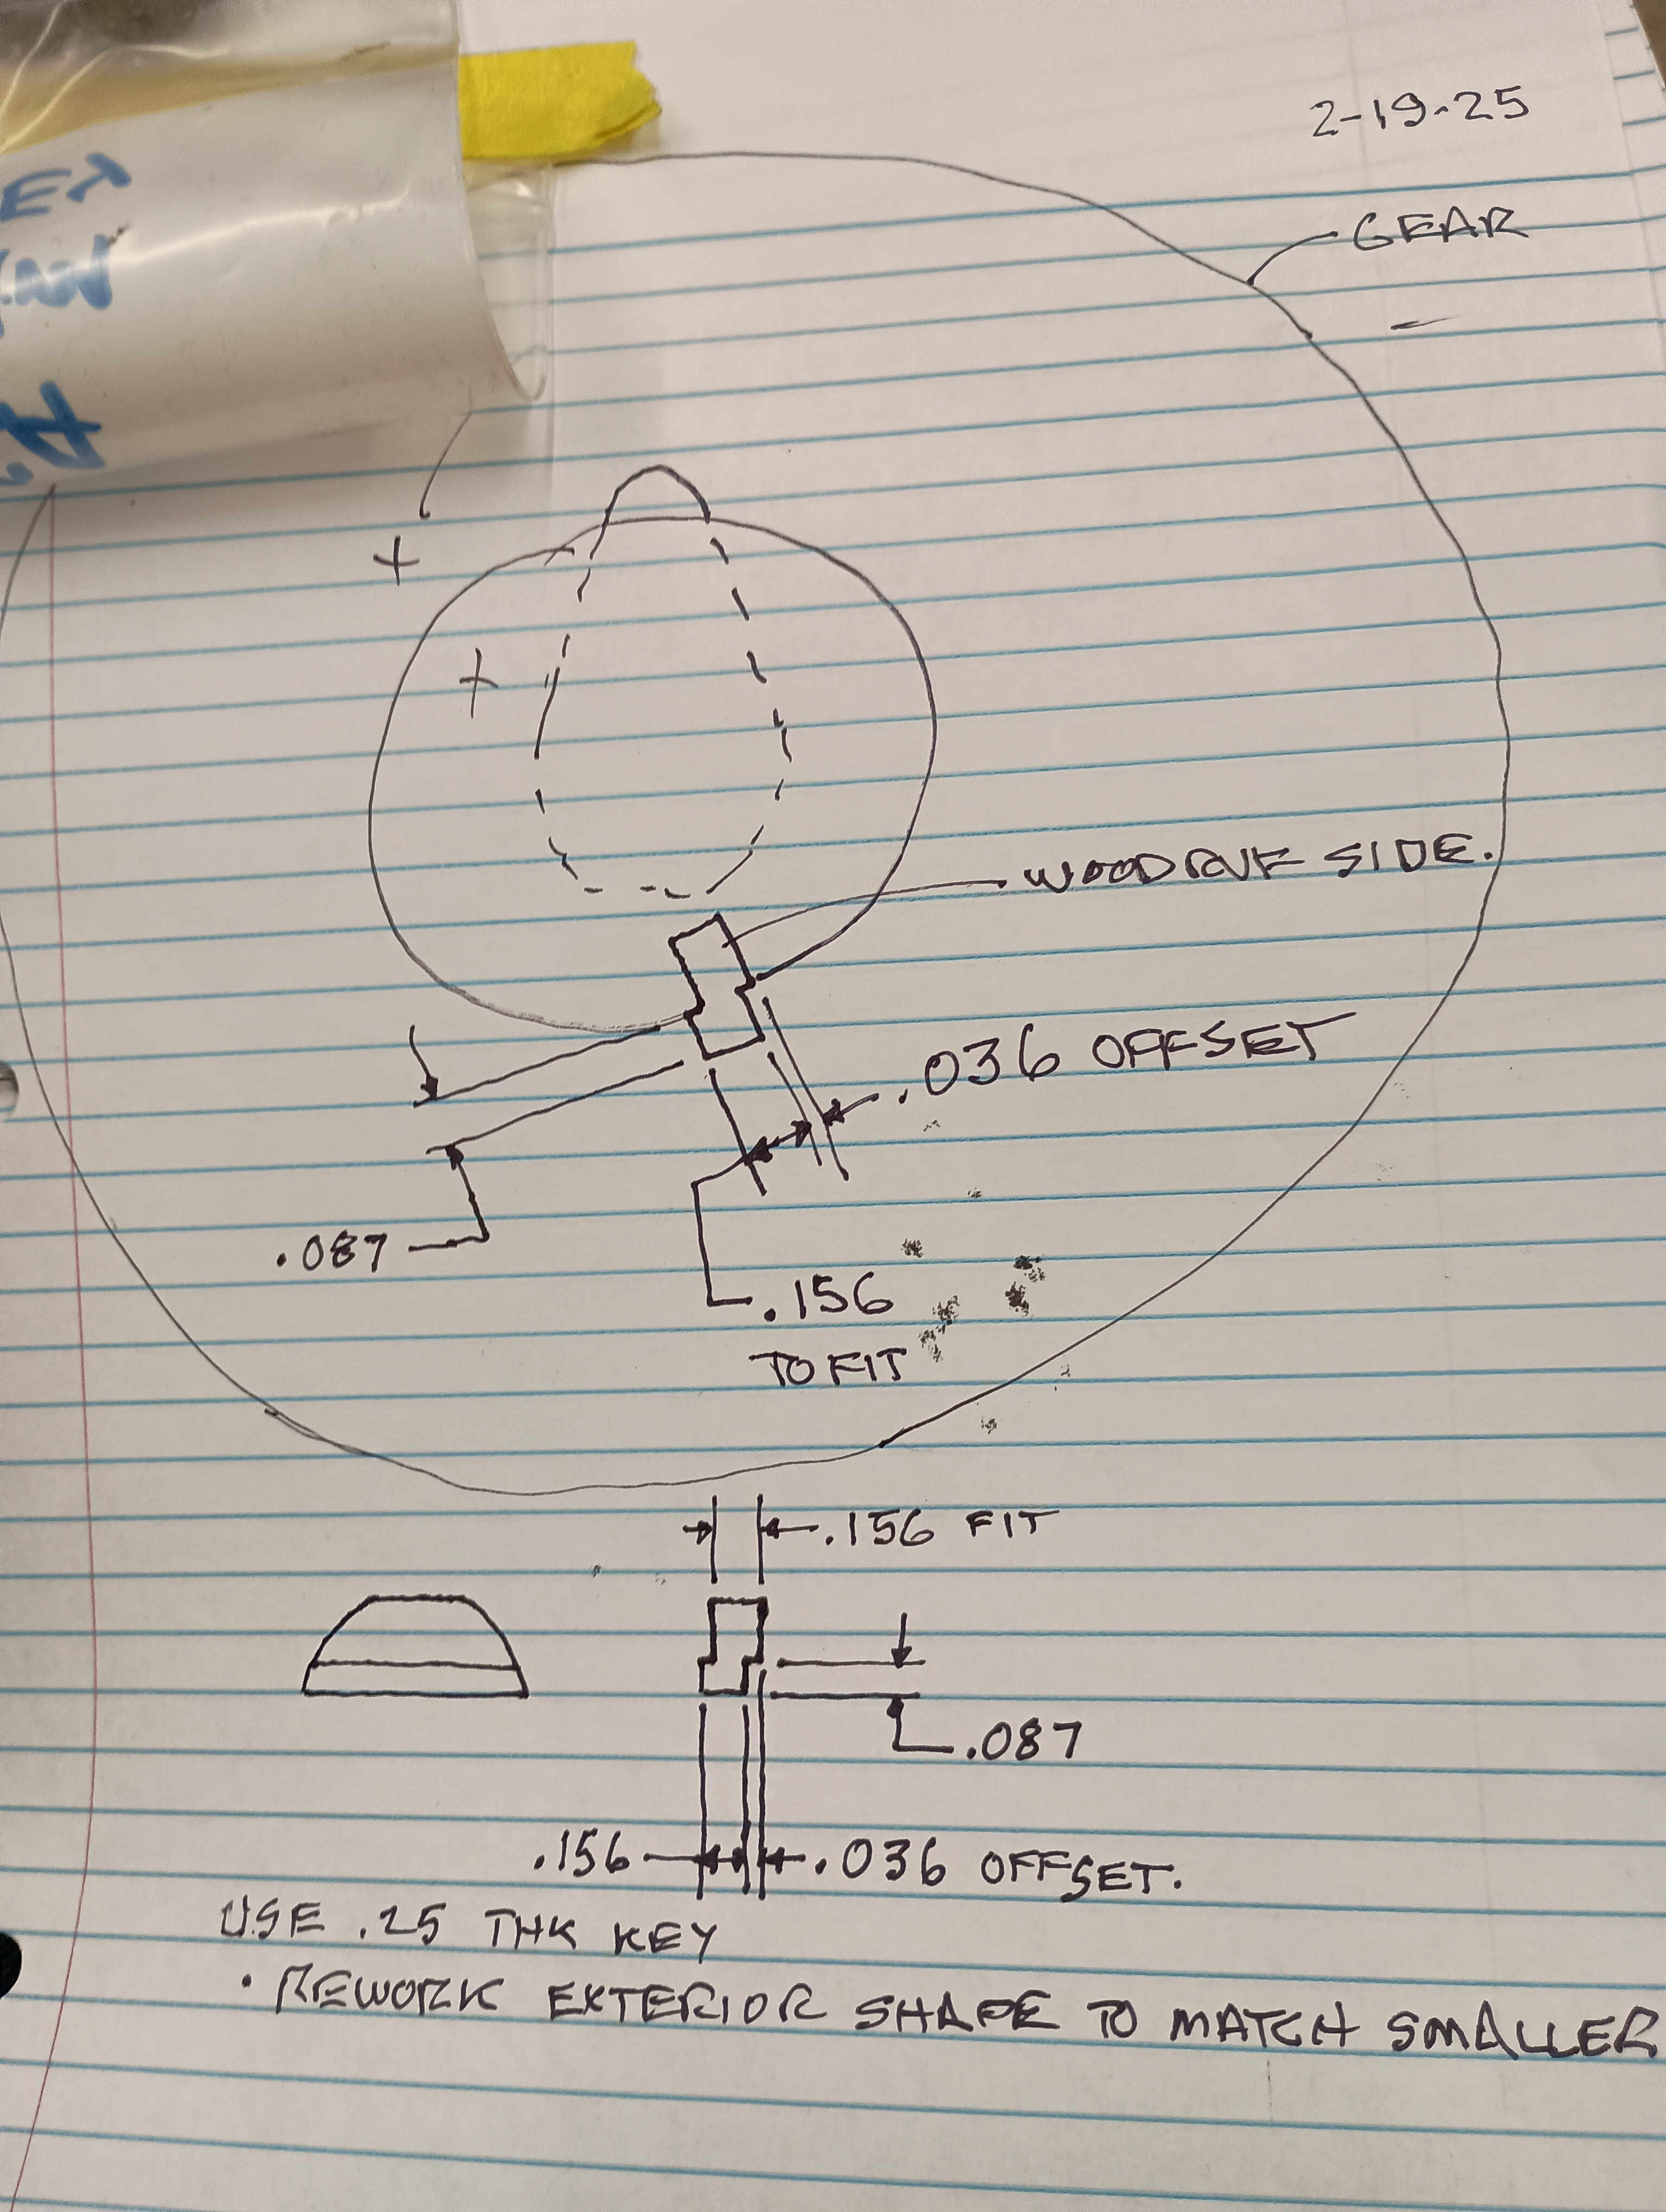 2-19-25
GEAR
ET
WOODRUF SIDE.
.036 OFFSET
.087
.156
TO FIT
.156 FIT
.087
.156
.036 OFFSET.
USE .25 THK KEY
• REWORK EXTERIOR SHAPE TO MATCH SMALLER